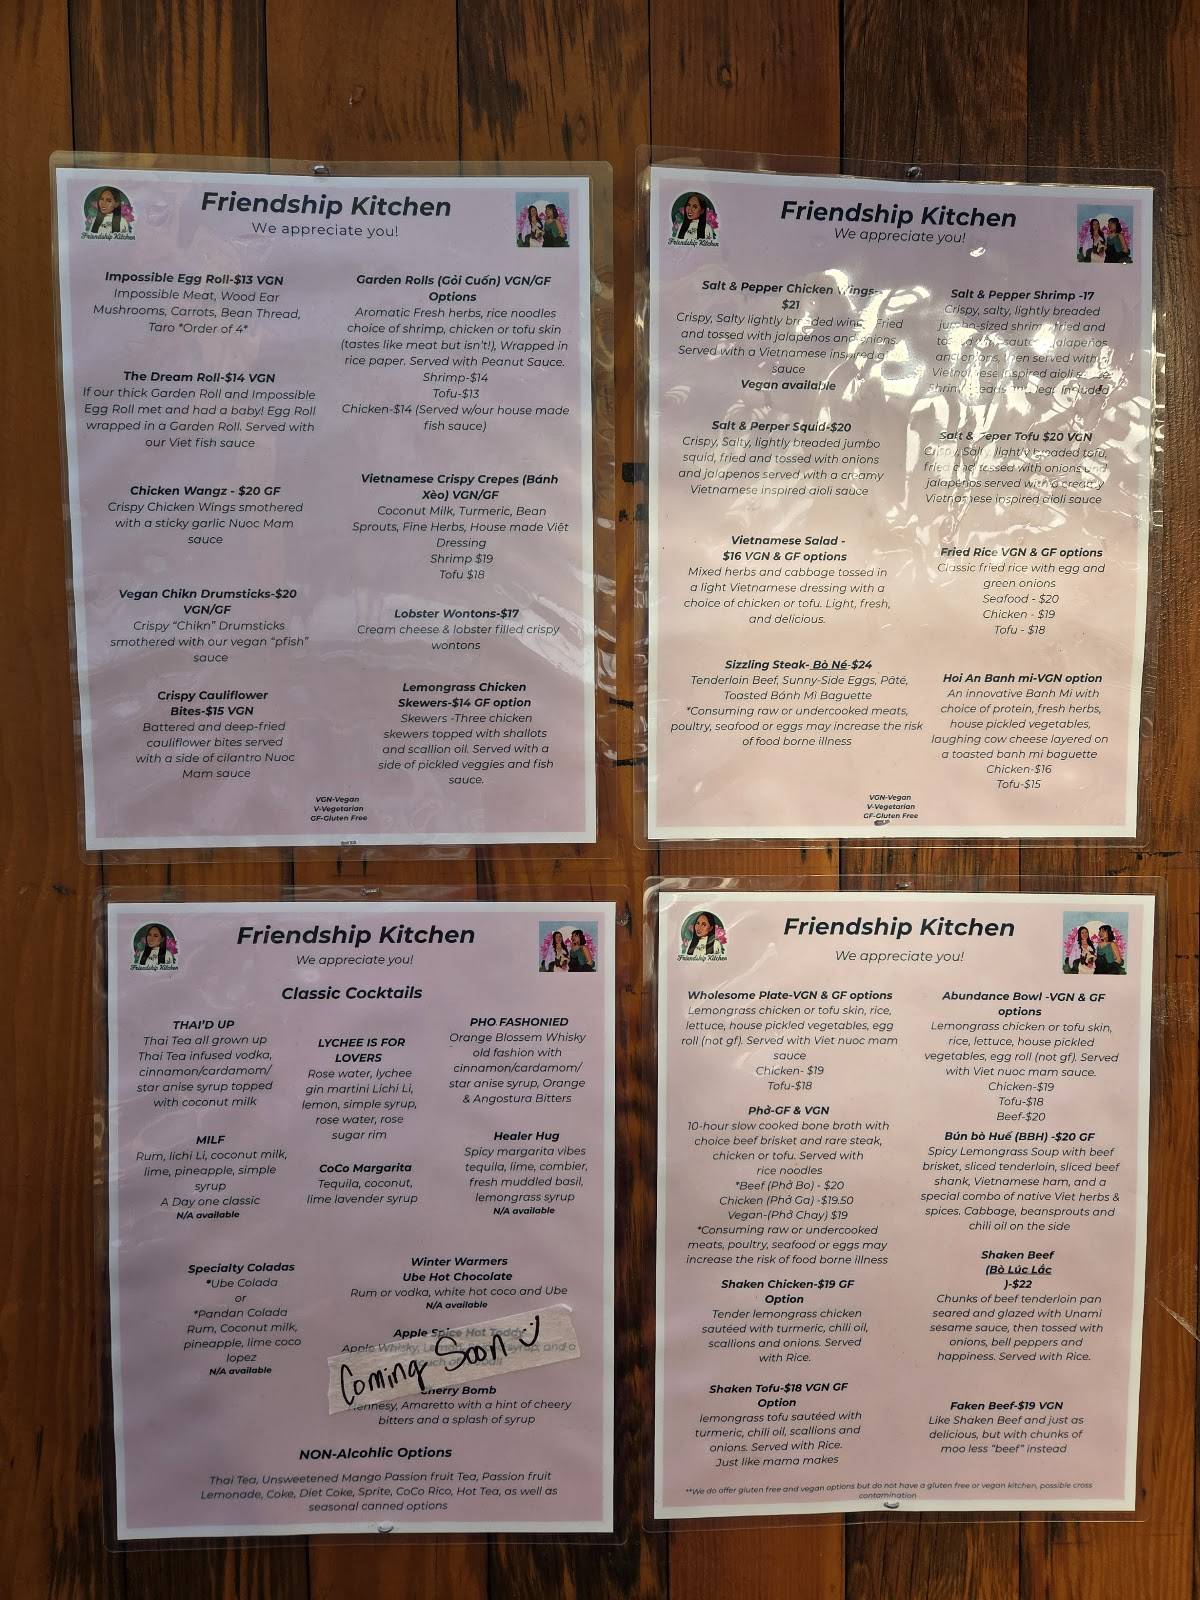 Friendship Kitchen
Friendship Kitchen
We appreciate you!
Impossible Egg Roll-$13 VGN
Impossible Meat, Wood Ear
Mushrooms, Carrots, Bean Thread,
Taro *Order of 4*
The Dream Roll-$14 VGN
If our thick Garden Roll and Impossible
Egg Roll met and had a baby! Egg Roll
wrapped in a Garden Roll. Served with
our Viet fish sauce
Chicken Wangz - $20 GF
Crispy Chicken Wings smothered
with a sticky garlic Nuoc Mam
sauce
Vegan Chikn Drumsticks-$20
VGN/GF
Crispy “Chikn” Drumsticks
smothered with our vegan “pfish”
sauce
Crispy Cauliflower
Bites-$15 VGN
Battered and deep-fried
cauliflower bites served
with a side of cilantro Nuoc
Mam sauce
Garden Rolls (Gỏi Cuốn) VGN/GF
Options
Aromatic Fresh herbs, rice noodles
choice of shrimp, chicken or tofu skin
(tastes like meat but isn't!), Wrapped in
rice paper. Served with Peanut Sauce.
Shrimp-$14
Tofu-$13
Chicken-$14 (Served w/our house made
fish sauce)
Vietnamese Crispy Crepes (Bánh
Xèo) VGN/GF
Coconut Milk, Turmeric, Bean
Sprouts, Fine Herbs, House made Việt
Dressing
Shrimp $19
Tofu $18
Lobster Wontons-$17
Cream cheese & lobster filled crispy
wontons
Lemongrass Chicken
Skewers-$14 GF option
Skewers -Three chicken
skewers topped with shallots
and scallion oil. Served with a
side of pickled veggies and fish
sauce.
VGN-Vegan
V-Vegetarian
GF-Gluten Free
Friendship Kitchen
Friendship Kitchen
We appreciate you!
Salt & Pepper Chicken Wings-
$21
Crispy, Salty lightly breaded wings Fried
and tossed with jalapenos and onions.
Served with a Vietnamese inspired
sauce
Vegan available
Salt & Perper Squid-$20
Crispy, Salty, lightly breaded jumbo
squid, fried and tossed with onions
and jalapenos served with a creamy
Vietnamese inspired aioli sauce
Vietnamese Salad -
$16 VGN & GF options
Mixed herbs and cabbage tossed in
a light Vietnamese dressing with a
choice of chicken or tofu. Light, fresh,
and delicious.
Sizzling Steak- Bò Né-$24
Tenderloin Beef, Sunny-Side Eggs, Pâté,
Toasted Bánh Mì Baguette
*Consuming raw or undercooked meats,
poultry, seafood or eggs may increase the risk
of food borne illness
Salt & Pepper Shrimp -17
Crispy, salty, lightly breaded
jumbo-sized shrimp fried and
tossed with sauteed jalapenos
and onions, then served with
Vietnamese inspired aioli
Shrimp heads and legs included
Salt & Peper Tofu $20 VGN
Crispy, Salty lightly breaded tofu,
fried and tossed with onions and
jalapenos served with a creamy
Vietnamese inspired aioli sauce
Fried Rice VGN & GF options
Classic fried rice with egg and
green onions
Seafood - $20
Chicken - $19
Tofu - $18
Hoi An Banh mi-VGN option
An innovative Banh Mi with
choice of protein, fresh herbs,
house pickled vegetables,
laughing cow cheese layered on
a toasted banh mi baguette
Chicken-$16
Tofu-$15
VGN-Vegan
V-Vegetarian
GF-Gluten Free
Friendship Kitchen
Friendship Kitchen
We appreciate you!
Classic Cocktails
THAI'D UP
Thai Tea all grown up
Thai Tea infused vodka,
cinnamon/cardamom/
star anise syrup topped
with coconut milk
MILF
Rum, lichi Li, coconut milk,
lime, pineapple, simple
syrup
A Day one classic
N/A available
LYCHEE IS FOR
LOVERS
Rose water, lychee
gin martini Lichi Li,
lemon, simple syrup,
rose water, rose
sugar rim
CoCo Margarita
Tequila, coconut,
lime lavender syrup
PHO FASHONIED
Orange Blossem Whisky
old fashion with
cinnamon/cardamom/
star anise syrup, Orange
& Angostura Bitters
Healer Hug
Spicy margarita vibes
tequila, lime, combier,
fresh muddled basil,
lemongrass syrup
N/A available
Specialty Coladas
*Ube Colada
or
*Pandan Colada
Rum, Coconut milk,
pineapple, lime coco
lopez
N/A available
Winter Warmers
Ube Hot Chocolate
Rum or vodka, white hot coco and Ube
N/A available
Apple Spice Hot Toddy
Apple Whisky, syrup, and a
Coming Soon
Cherry Bomb
Hennesy, Amaretto with a hint of cheery
bitters and a splash of syrup
NON-Alcohlic Options
Thai Tea, Unsweetened Mango Passion fruit Tea, Passion fruit
Lemonade, Coke, Diet Coke, Sprite, CoCo Rico, Hot Tea, as well as
seasonal canned options
Friendship Kitchen
Friendship Kitchen
We appreciate you!
Wholesome Plate-VGN & GF options
Lemongrass chicken or tofu skin, rice,
lettuce, house pickled vegetables, egg
roll (not gf). Served with Viet nuoc mam
sauce
Chicken- $19
Tofu-$18
Phở-GF & VGN
10-hour slow cooked bone broth with
choice beef brisket and rare steak,
chicken or tofu. Served with
rice noodles
*Beef (Phở Bo) - $20
Chicken (Phở Ga) -$19.50
Vegan-(Phở Chay) $19
*Consuming raw or undercooked
meats, poultry, seafood or eggs may
increase the risk of food borne illness
Shaken Chicken-$19 GF
Option
Tender lemongrass chicken
sautéed with turmeric, chili oil,
scallions and onions. Served
with Rice.
Shaken Tofu-$18 VGN GF
Option
lemongrass tofu sautéed with
turmeric, chili oil, scallions and
onions. Served with Rice.
Just like mama makes
Abundance Bowl -VGN & GF
options
Lemongrass chicken or tofu skin,
rice, lettuce, house pickled
vegetables, egg roll (not gf). Served
with Viet nuoc mam sauce.
Chicken-$19
Tofu-$18
Beef-$20
Bún bò Huế (BBH) -$20 GF
Spicy Lemongrass Soup with beef
brisket, sliced tenderloin, sliced beef
shank, Vietnamese ham, and a
special combo of native Viet herbs &
spices. Cabbage, beansprouts and
chili oil on the side
Shaken Beef
(Bò Lúc Lắc
)-$22
Chunks of beef tenderloin pan
seared and glazed with Unami
sesame sauce, then tossed with
onions, bell peppers and
happiness. Served with Rice.
Faken Beef-$19 VGN
Like Shaken Beef and just as
delicious, but with chunks of
moo less “beef” instead
**We do offer gluten free and vegan options but do not have a gluten free or vegan kitchen, possible cross
contamination